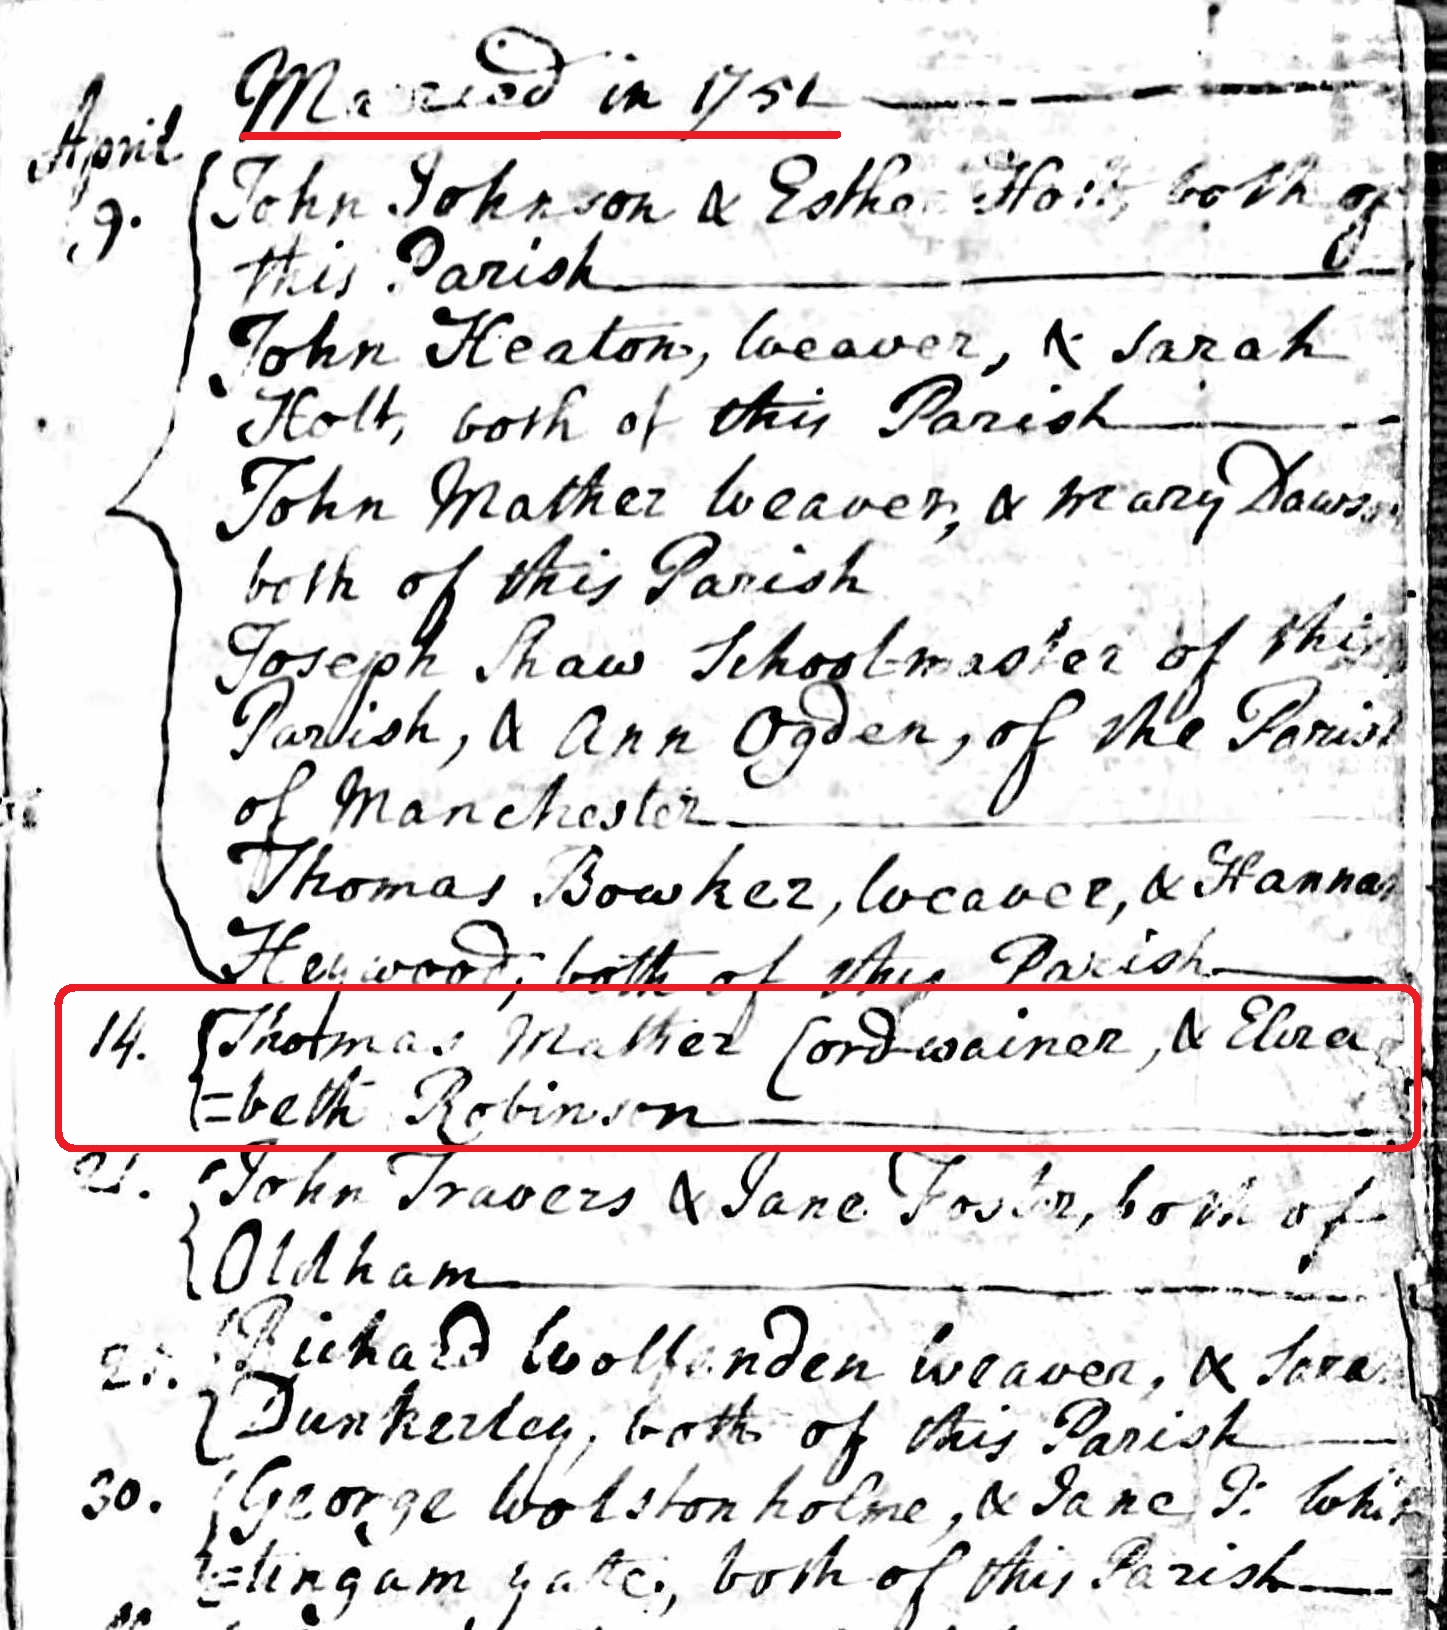 Married in 1751
April
9. John Johnson & Esther Holt, both of
this Parish
John Heaton, weaver, & Sarah
Holt, both of this Parish
John Mather weaver, & Mary Daws
both of this Parish
Joseph Shaw Schoolmaster of this
Parish, & Ann Ogden, of the Parish
of Manchester
Thomas Bowker, weaver, & Hannah
Heywood, both of this Parish
14. Thomas Mather Cordwainer, & Eliza
=beth Robinson
21. John Travers & Jane Foster, both of
Oldham
Richard Wolfenden weaver, & Sarah
Dunkerley, both of this Parish
30. George Wolstonholme, & Jane
=tingam gate, both of this Parish